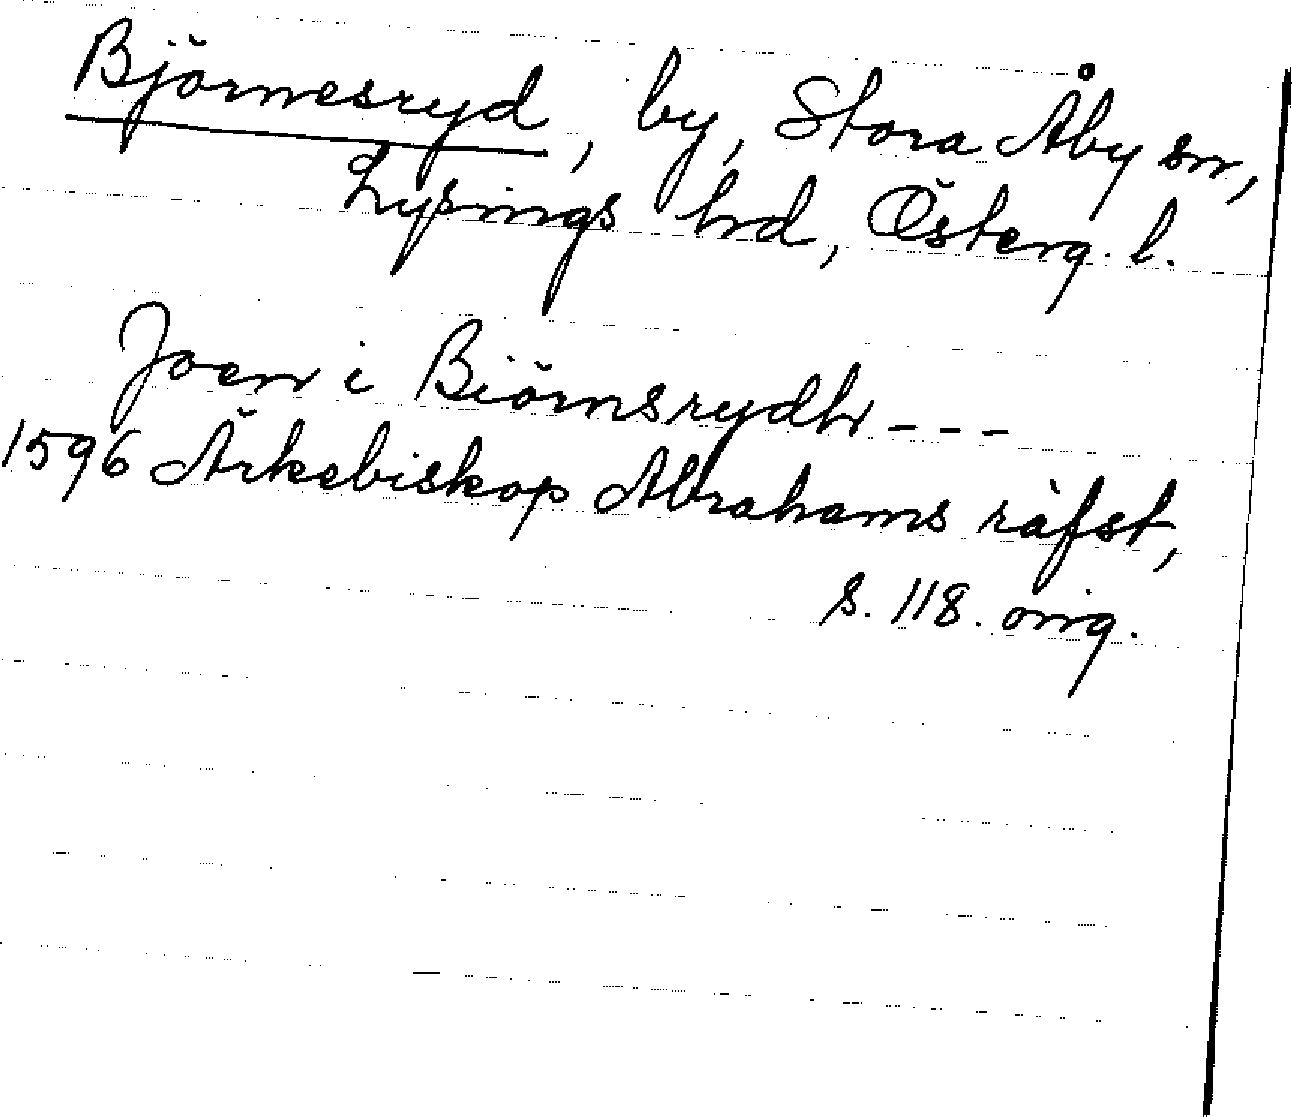 Björnesryd, by, Stora Åby sn,
Lysings hd, Österg. l.
Joen i Biörnsrydh - - -
1596 Ärkebiskop Abrahams räfst,
s. 118. orig.